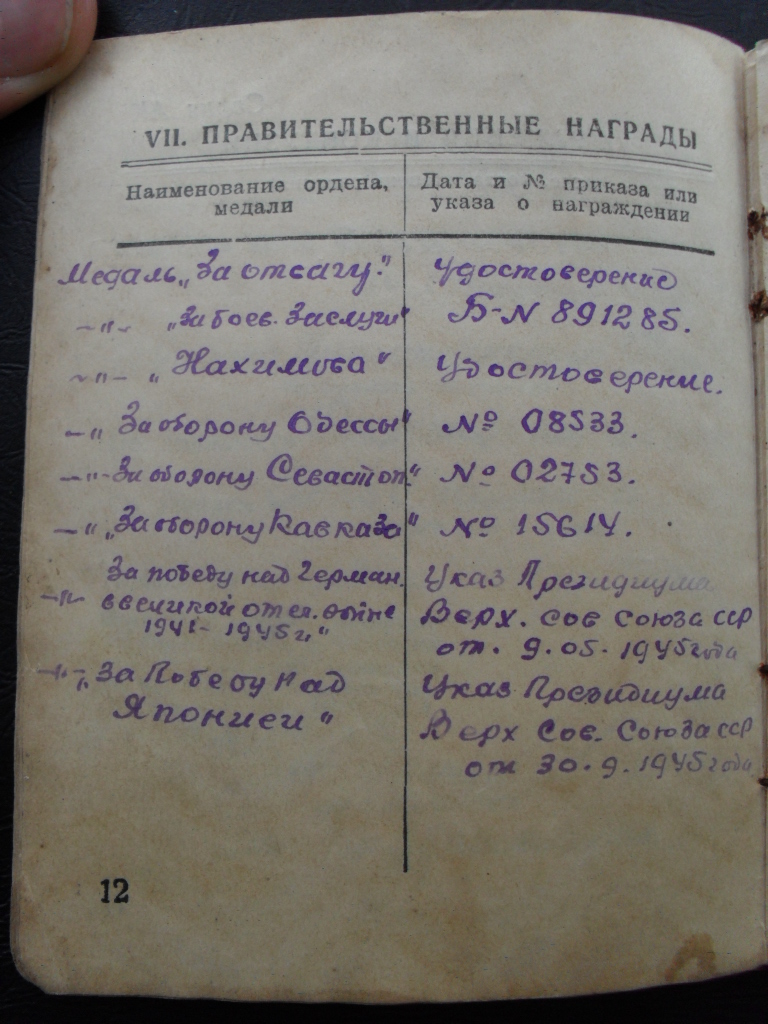 VII. ПРАВИТЕЛЬСТВЕННЫЕ НАГРАДЫ
Наименование ордена, медали
Дата и № приказа или указа о награждении
Медаль „За отвагу."
Удостоверение
–„– „За боев. Заслуги"
Б-N 891285.
–„– „Нахимова"
Удостоверение.
–„ За оборону Одессы"
№ 08533.
–„– За оборону Севастоп."
№ 02753.
–„ „За оборону Кавказа"
№ 15614.
За победу над Герман.
Указ Президиума
–„– в великой отеч. войне
Верх. Сов Союза ССР
1941-1945 г."
от. 9.05.1945 года
–„– „За Победу над
Указ Президиума
Японией"
Верх Сов. Союза ССР
от 30.9.1945 года
12